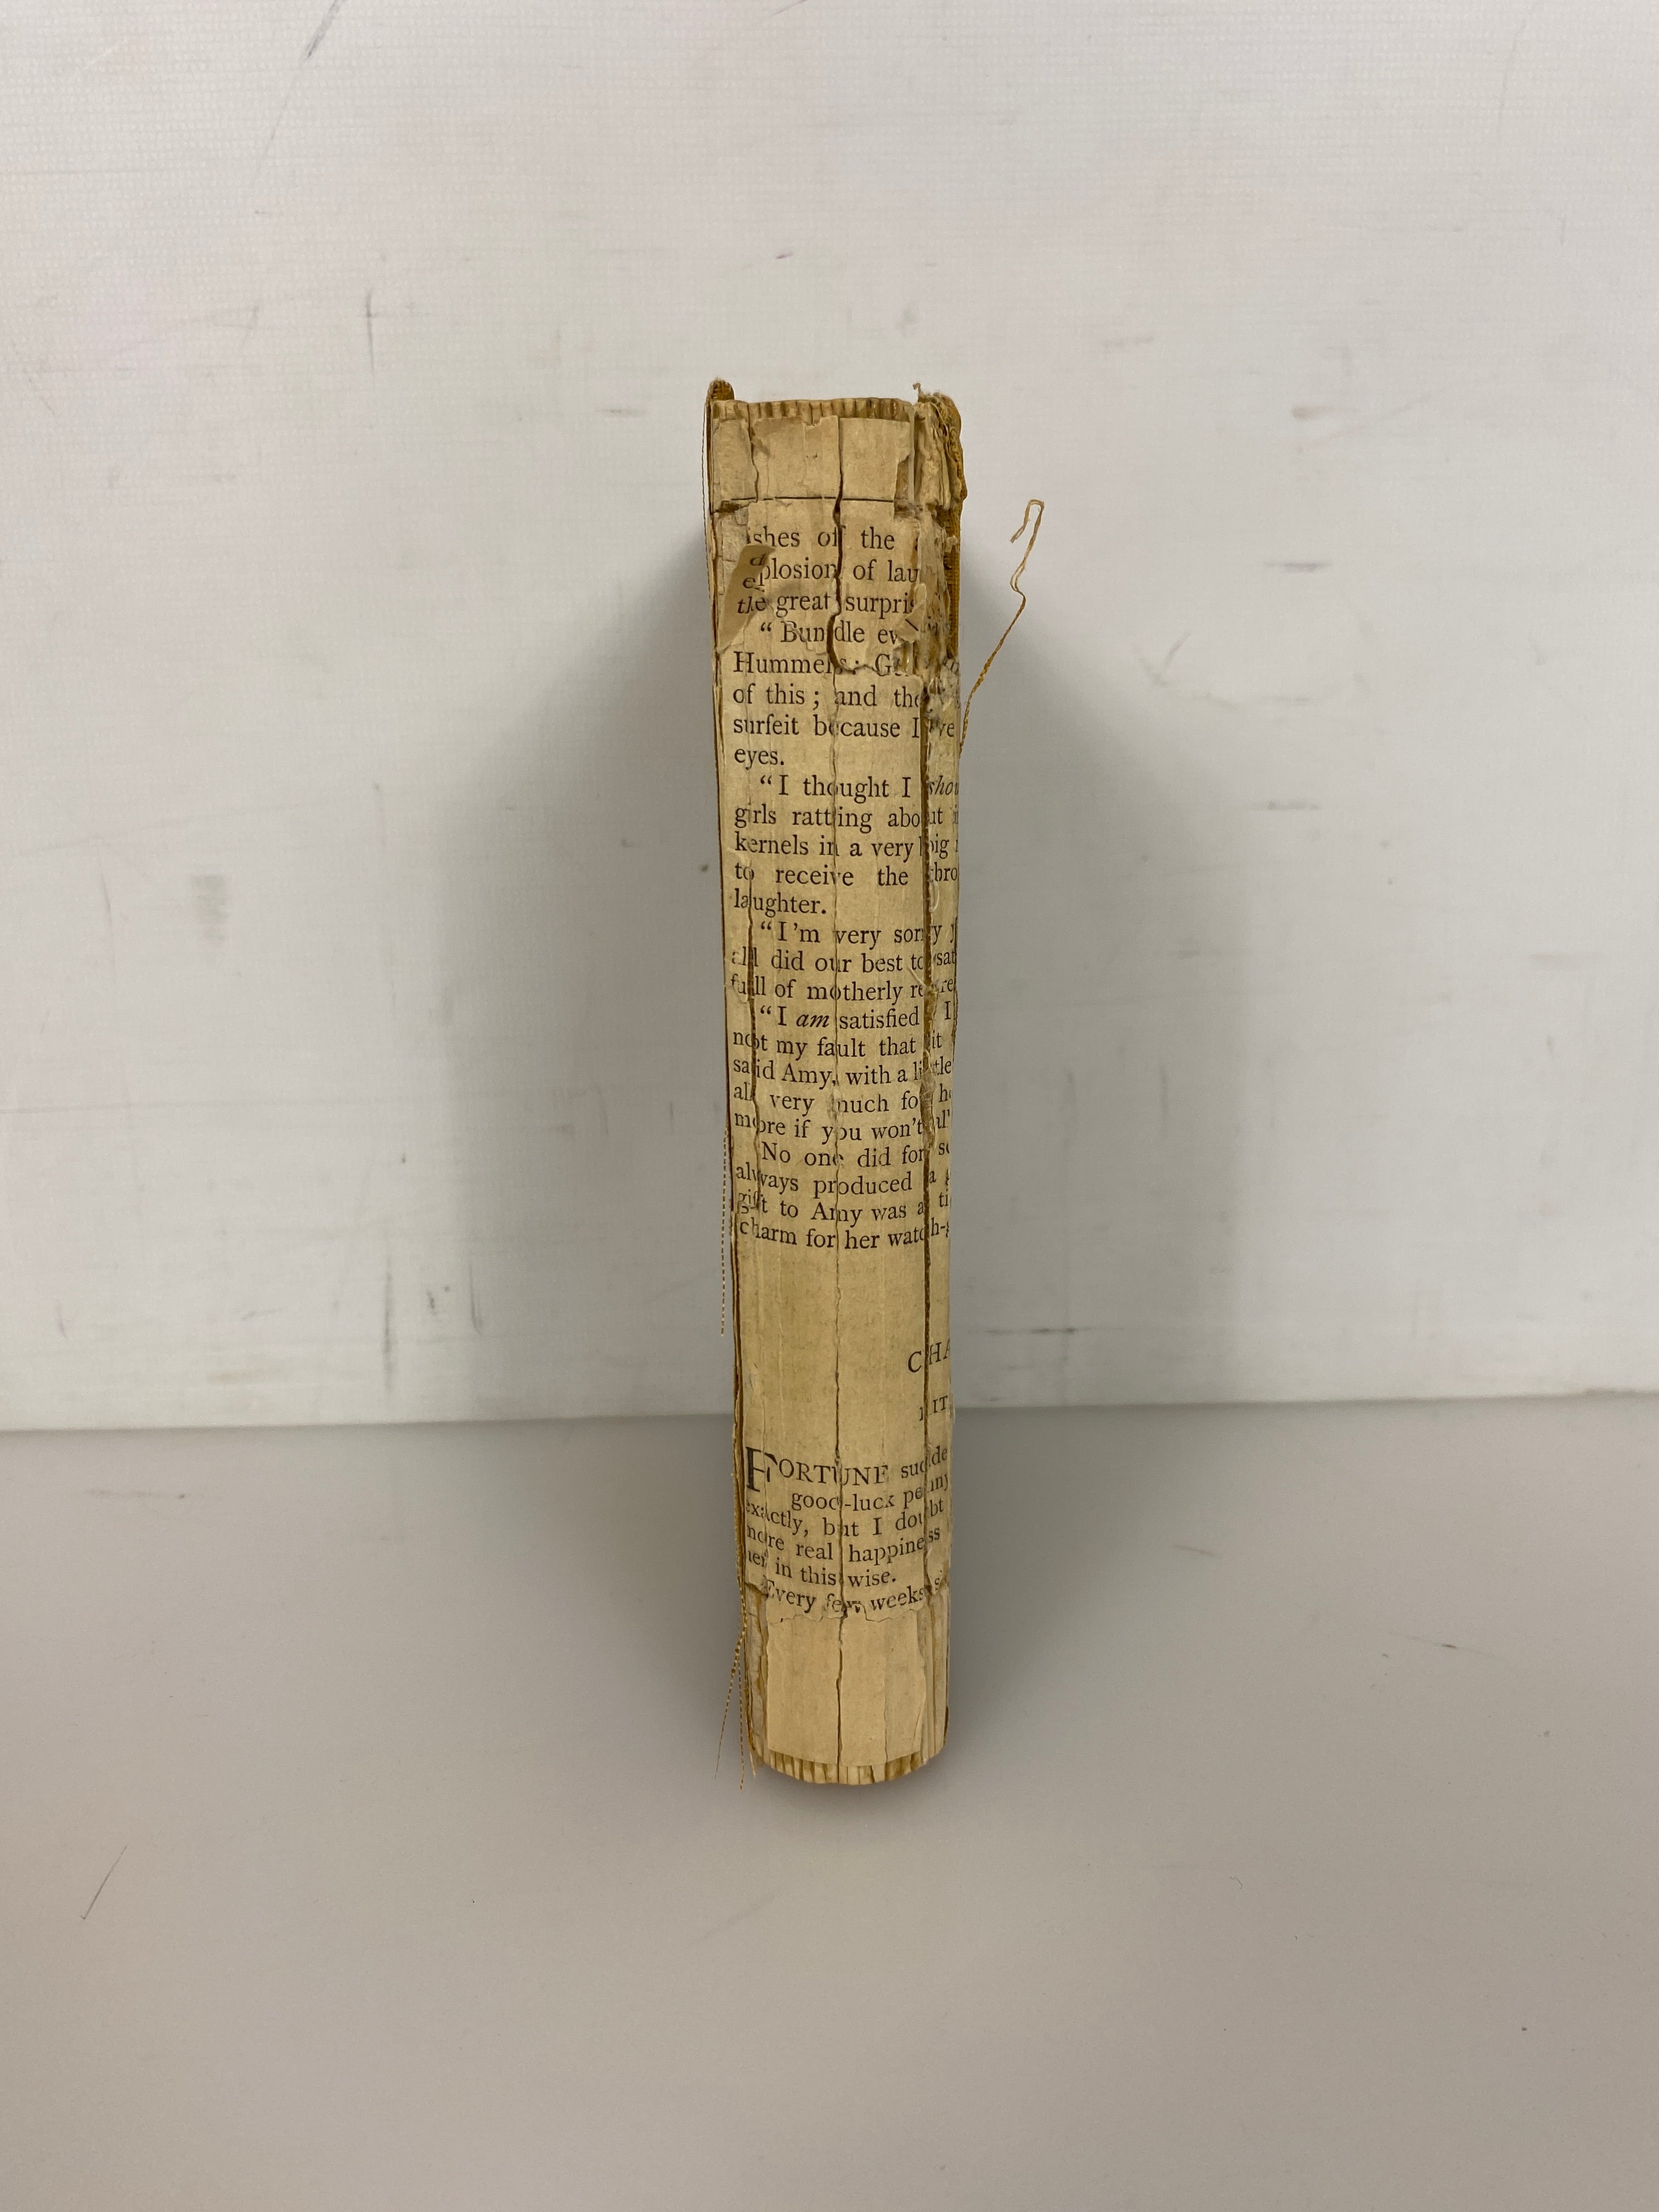 ishes of the
plosion of lau
the great surpris
“ Bundle ev
Hummels: G
of this ; and the
surfeit because I 've
eyes.
“I thought I shou
girls rattling about i
kernels in a very big
to receive the bro
laughter.
“I'm very sorry y
all did our best to sat
full of motherly regre
“I am satisfied I
not my fault that it
said Amy, with a little
all very much for he
more if you won't ul
No one did for so
always produced a g
gift to Amy was a ti
charm for her watch-g
CHA
LIT
FORTUNE sudde
good-luck penny
exactly, but I doubt
more real happiness
her in this wise.
Every few weeks s